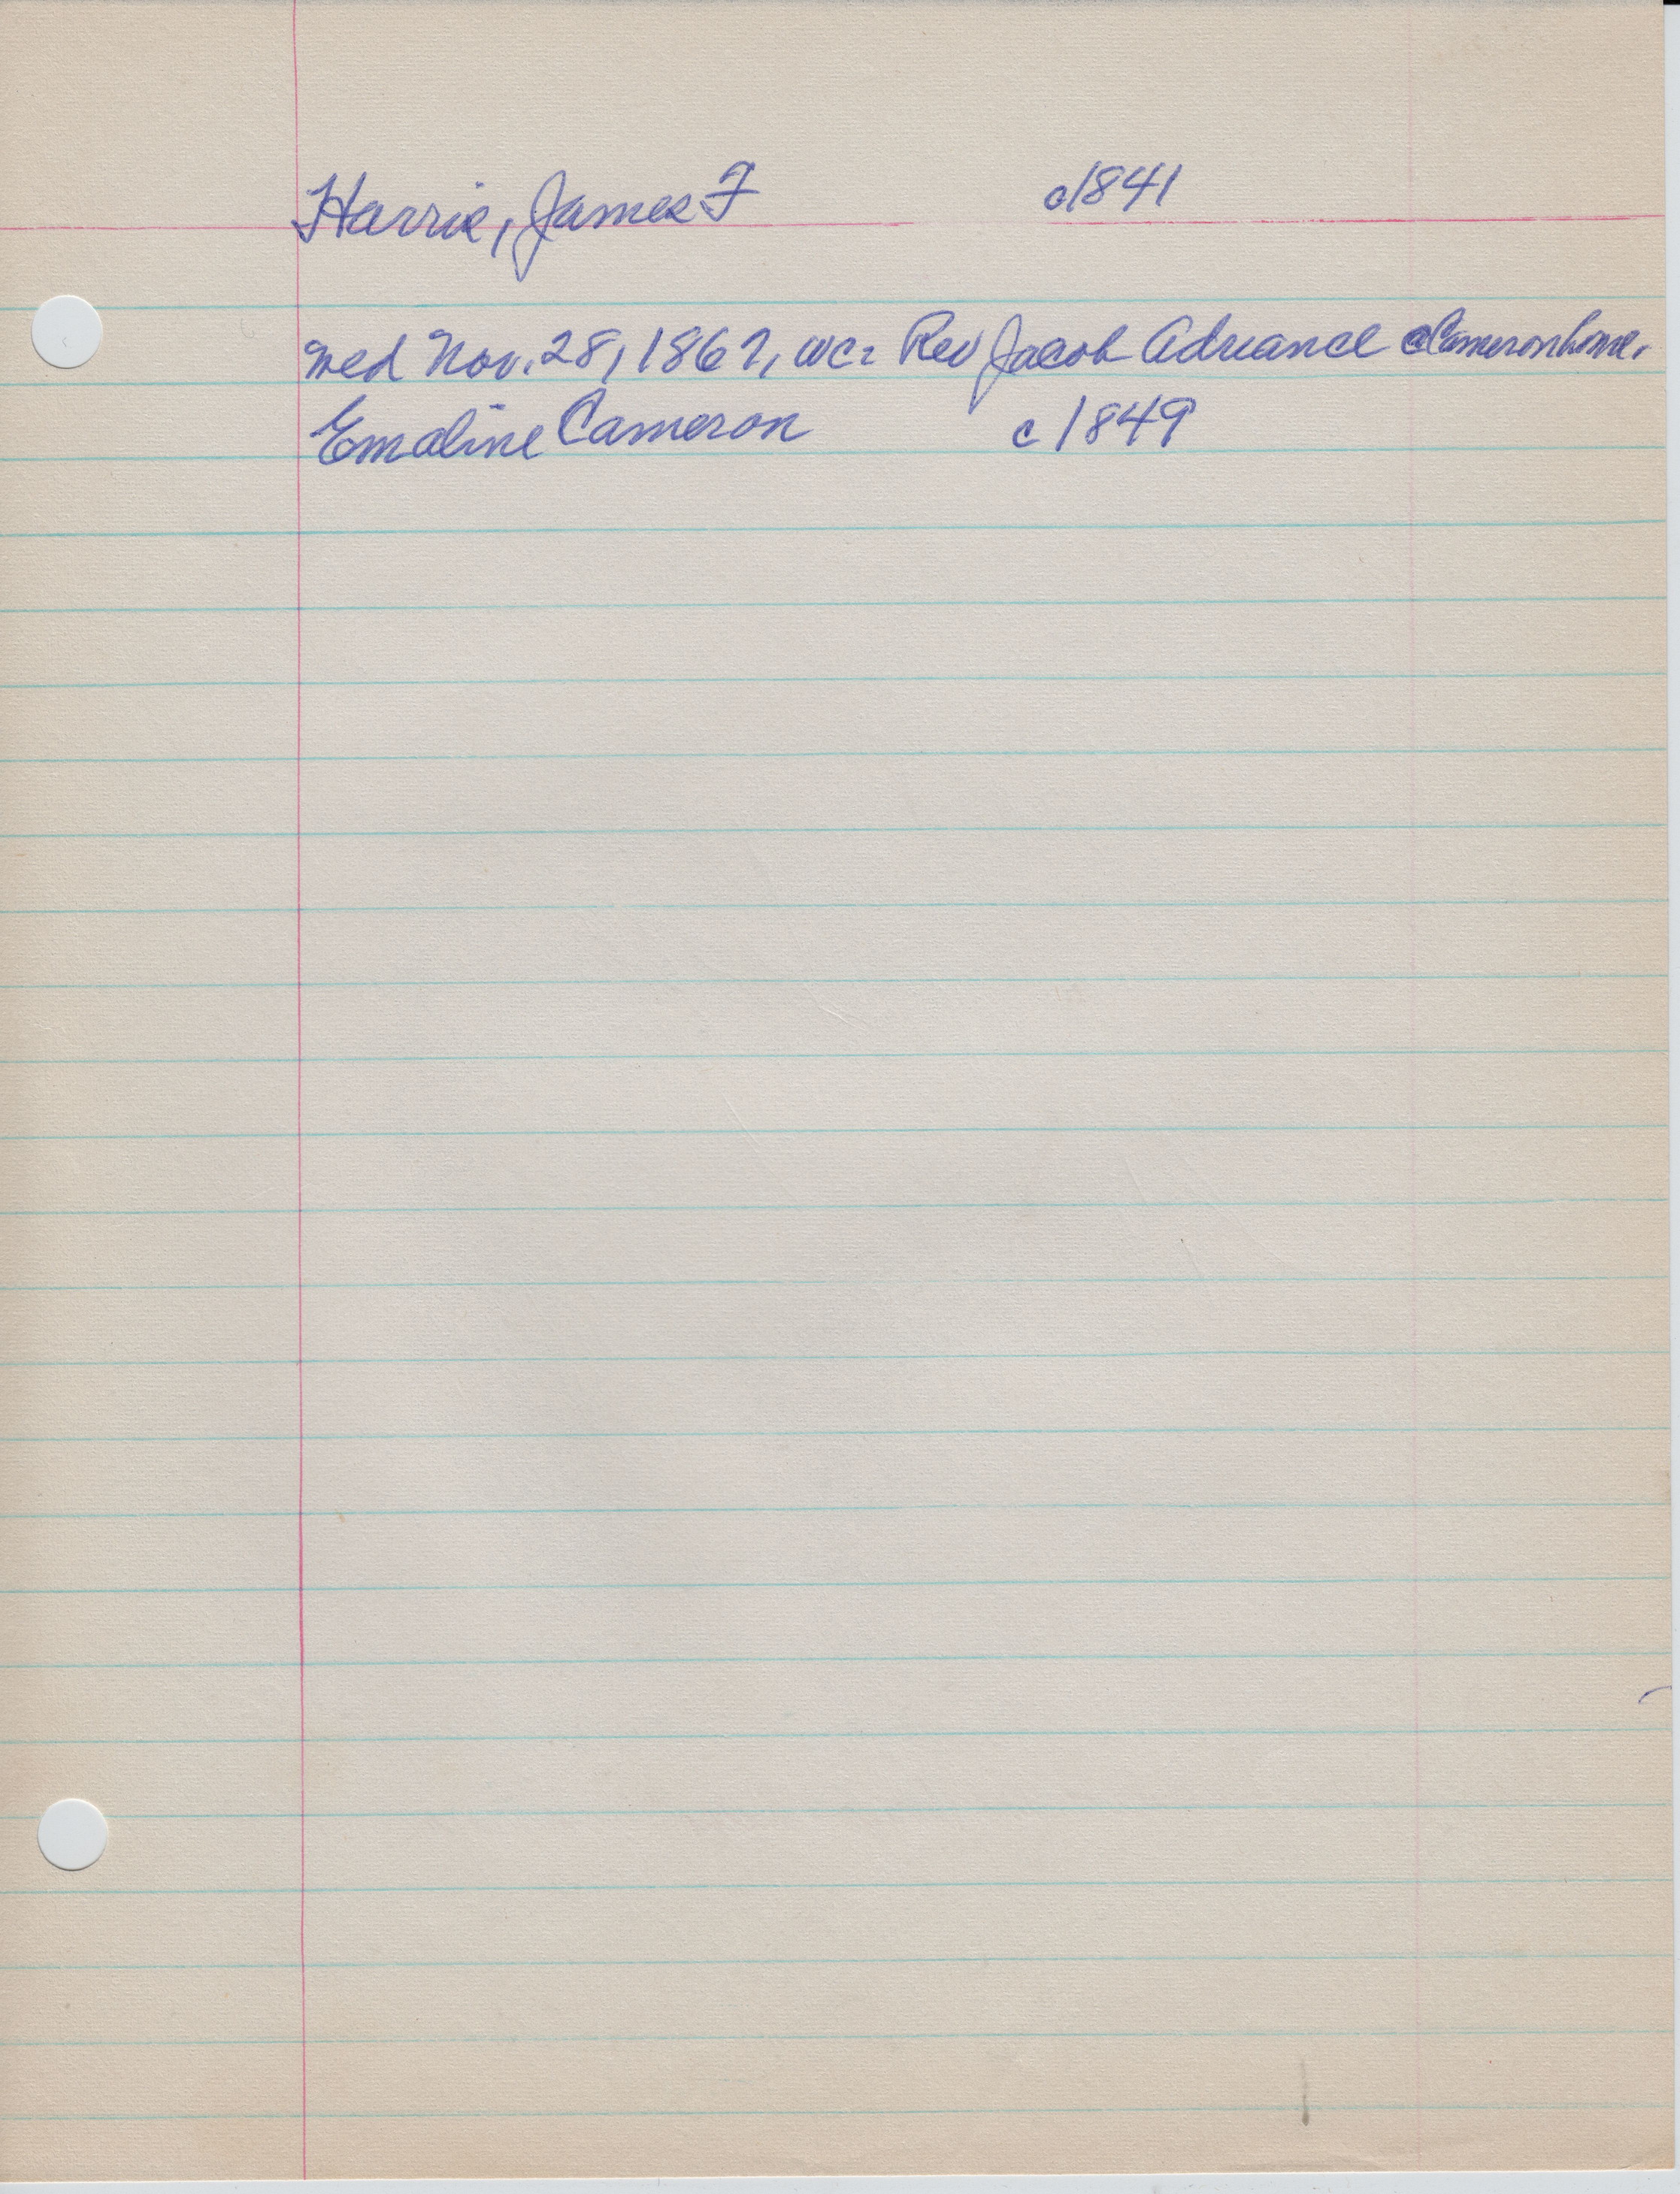 Harris, James F c1841
wed Nov. 28, 1867, WC: Rev Jacob Advance Cameron home.
Emaline Cameron c1849